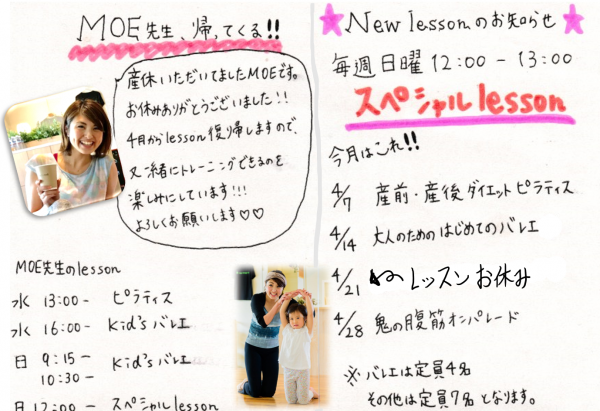 MOE先生、帰ってくる!!
産休いただいてましたMOEです。
お休みありがとうございました!!
4月からlesson復り帰しますので、
又一緒にトレーニングできるのを
楽しみにしています!!!
よろしくお願いします♡♡
MOE先生のlesson
水 13:00- ピラティス
水 16:00- Kid'sバレエ
日 9:15- Kid'sバレエ
10:30-
日 12:00- スペシャルlesson
★New lessonのお知らせ★
毎週日曜 12:00-13:00
スペシャルlesson
今月はこれ!!
4/7 産前・産後ダイエットピラティス
4/14 大人のためのはじめてのバレエ
4/21 レッスンお休み
4/28 鬼の腹筋オンパレード
※バレエは定員4名
その他は定員7名となります。